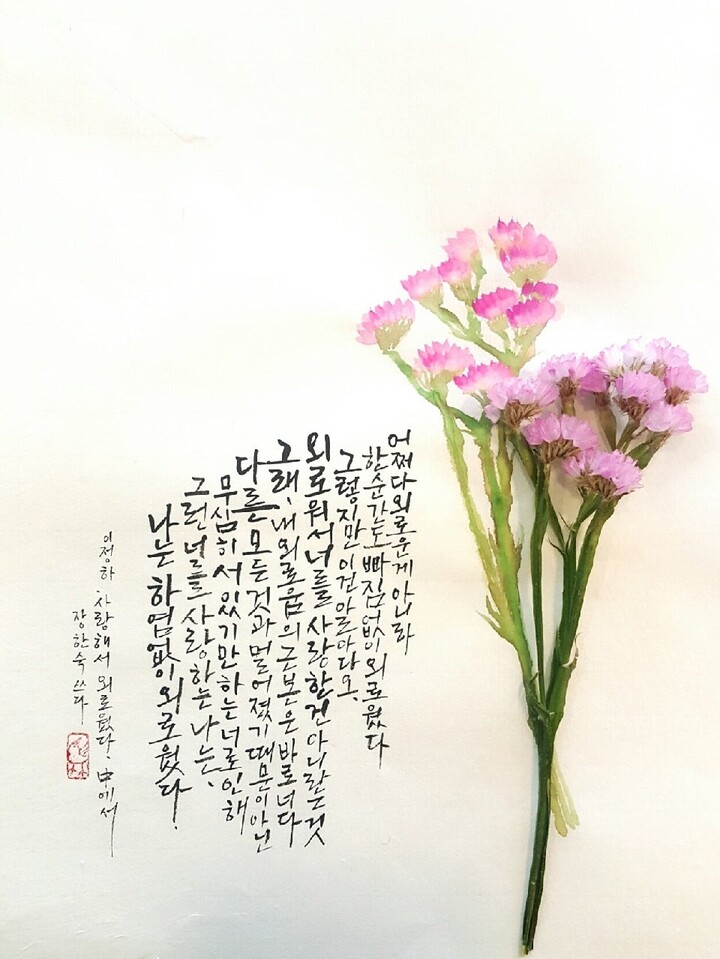 어쩌다 외로운게 아니라
한순간도 빠짐없이 외로웠다
그렇지만 이건 알아다오.
외로워서 너를 사랑한건 아니라는 것
그래, 내 외로움의 근본은 바로 너다
다른 모든것과 멀어졌기 때문이 아닌
무심히 서 있기만 하는 너로 인해
그런 너를 사랑하는 나는,
나는 하염없이 외로웠다.
이정하, 사랑해서 외로웠다. 中에서
장한숙 쓰다